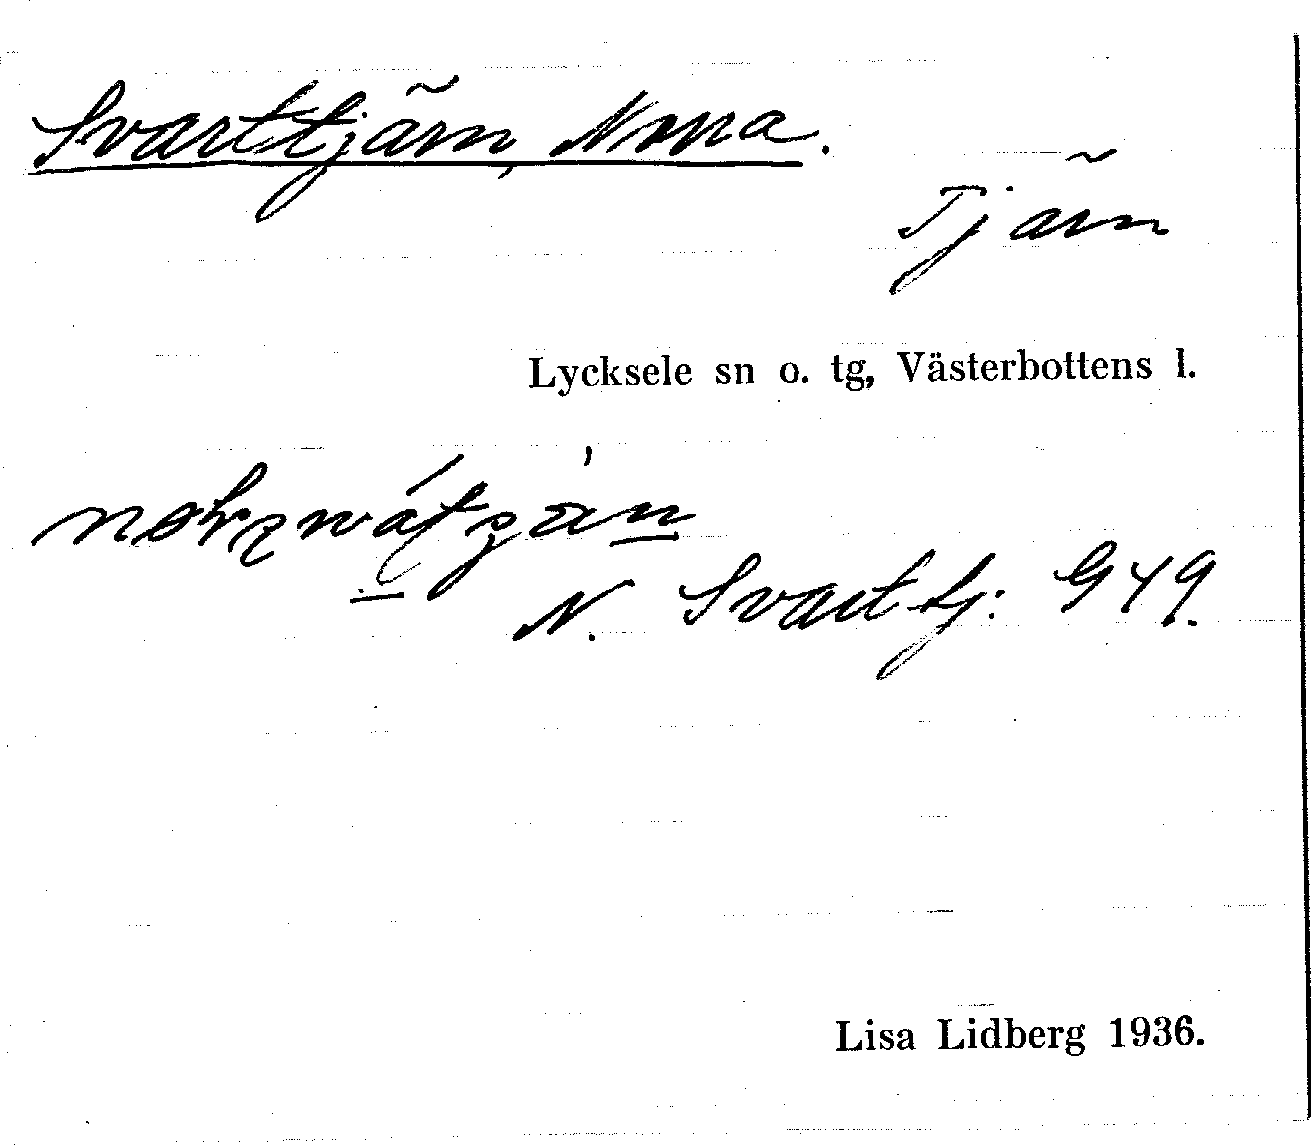 Svarttjärn, Norra.
Tjärn
Lycksele sn o. tg, Västerbottens l.
N. Svarttj: G49.
Lisa Lidberg 1936.